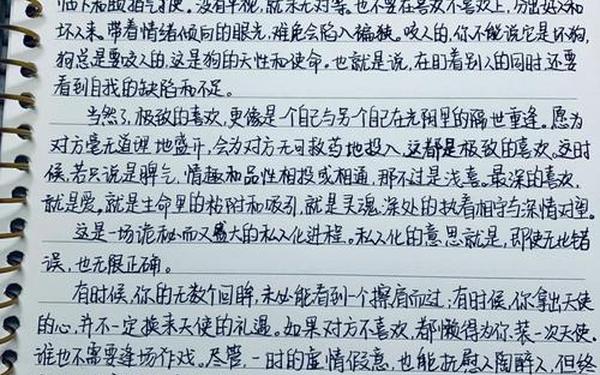 临下和颐指气使。没有平视,就永无对等。也不要在喜欢不喜欢上,分出好人和
坏人来。带着情绪倾向的眼光,难免会陷入偏狭。咬人的,你不能说它是坏狗,
狗总是要咬人的,这是狗的天性和使命。也就是说,在盯着别人的同时,还要
看到自我的缺陷和不足。
当然了,极致的喜欢,更像是一个自己与另一个自己在光阴里的隔世重逢。愿为
对方毫无道理地盛开,会为对方无可救药地投入,这都是极致的喜欢。这时
候,若只说是脾气,情趣和品性相投或相通,那不过是浅喜。最深的喜欢,
就是爱。就是生命里的粘附和吸引,就是灵魂深处的执着相守与深情对望。
这是一场诡秘而又盛大的私人化进程。私人化的意思就是,即使无比错
误,也无限正确。
有时候,你的无数个回眸,未必能看到一个擦肩而过;有时候,你拿出天使
的心,并不一定换来天使的礼遇。如果对方不喜欢,都懒得为你,装一次天使。
谁也不需要逢场作戏。尽管,一时的虚情假意,也能抚慰人陶醉人,但终